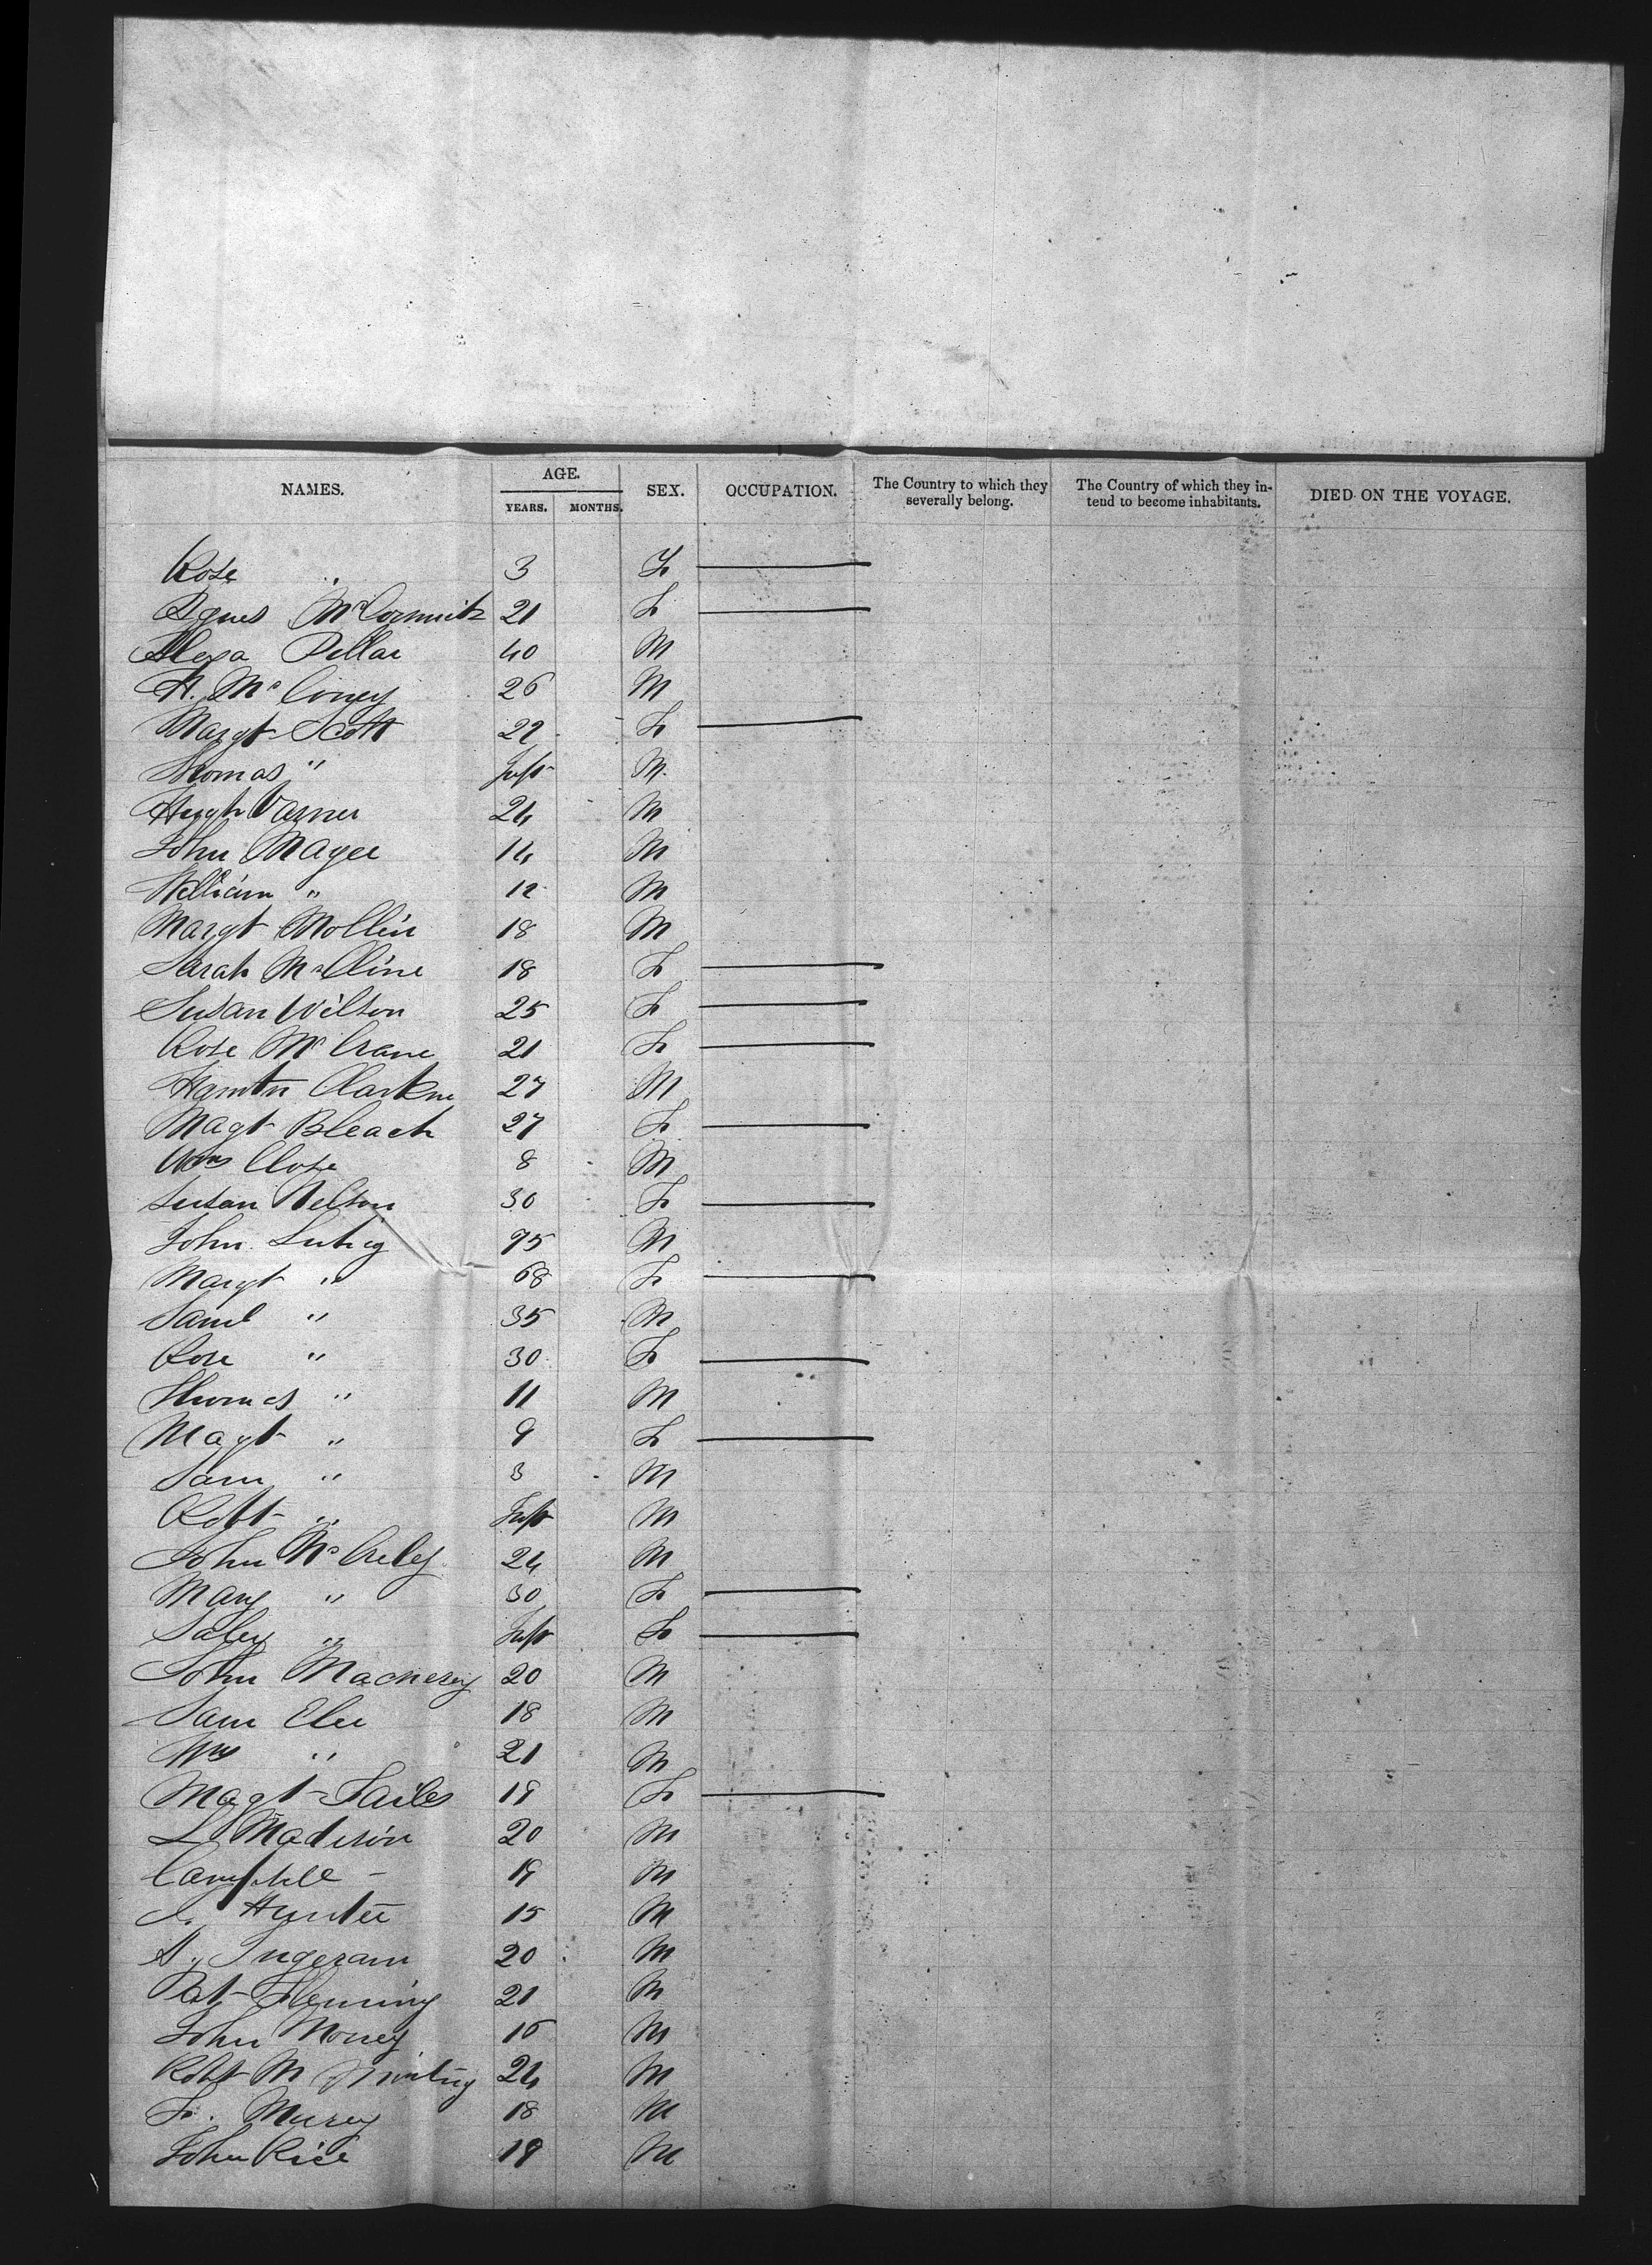 NAMES. AGE. SEX. OCCUPATION. The Country to which they severally belong. The Country of which they intend to become inhabitants. DIED ON THE VOYAGE.
YEARS. MONTHS.
Rose " 3 F
Agnes McCormick 21 F
Alexa Pillar 40 M
H. McConey 26 M
Margt Scott 22 F
Thomas " Inft M
Hugh Varner 24 M
John Magee 14 M
William " 12 M
Margt Mollin 18 M
Sarah McCline 18 F
Susan Wilson 25 F
Rose McCrane 21 F
Hamtn 27 M
Magt Bleach 27 F
Wm Close 8 M
Susan Nelson 30 F
John 75 M
Margt " 68 F
Saml " 35 M
Rose " 30 F
Thomas " 11 M
Magt " 9 F
Sam " 3 M
Robt " Inft M
John 24 M
Mary " 30 F
" Inft F
John Macnesy 20 M
Sam Elee 18 M
Wm " 21 M
Magt Sailes 19 F
L Madison 20 M
19 M
J. Hunter 15 M
A. Ingeram 20 M
Pat Fleming 21 M
John Money 16 M
Robt M 24 M
F. Murey 18 M
John Rice 19 M